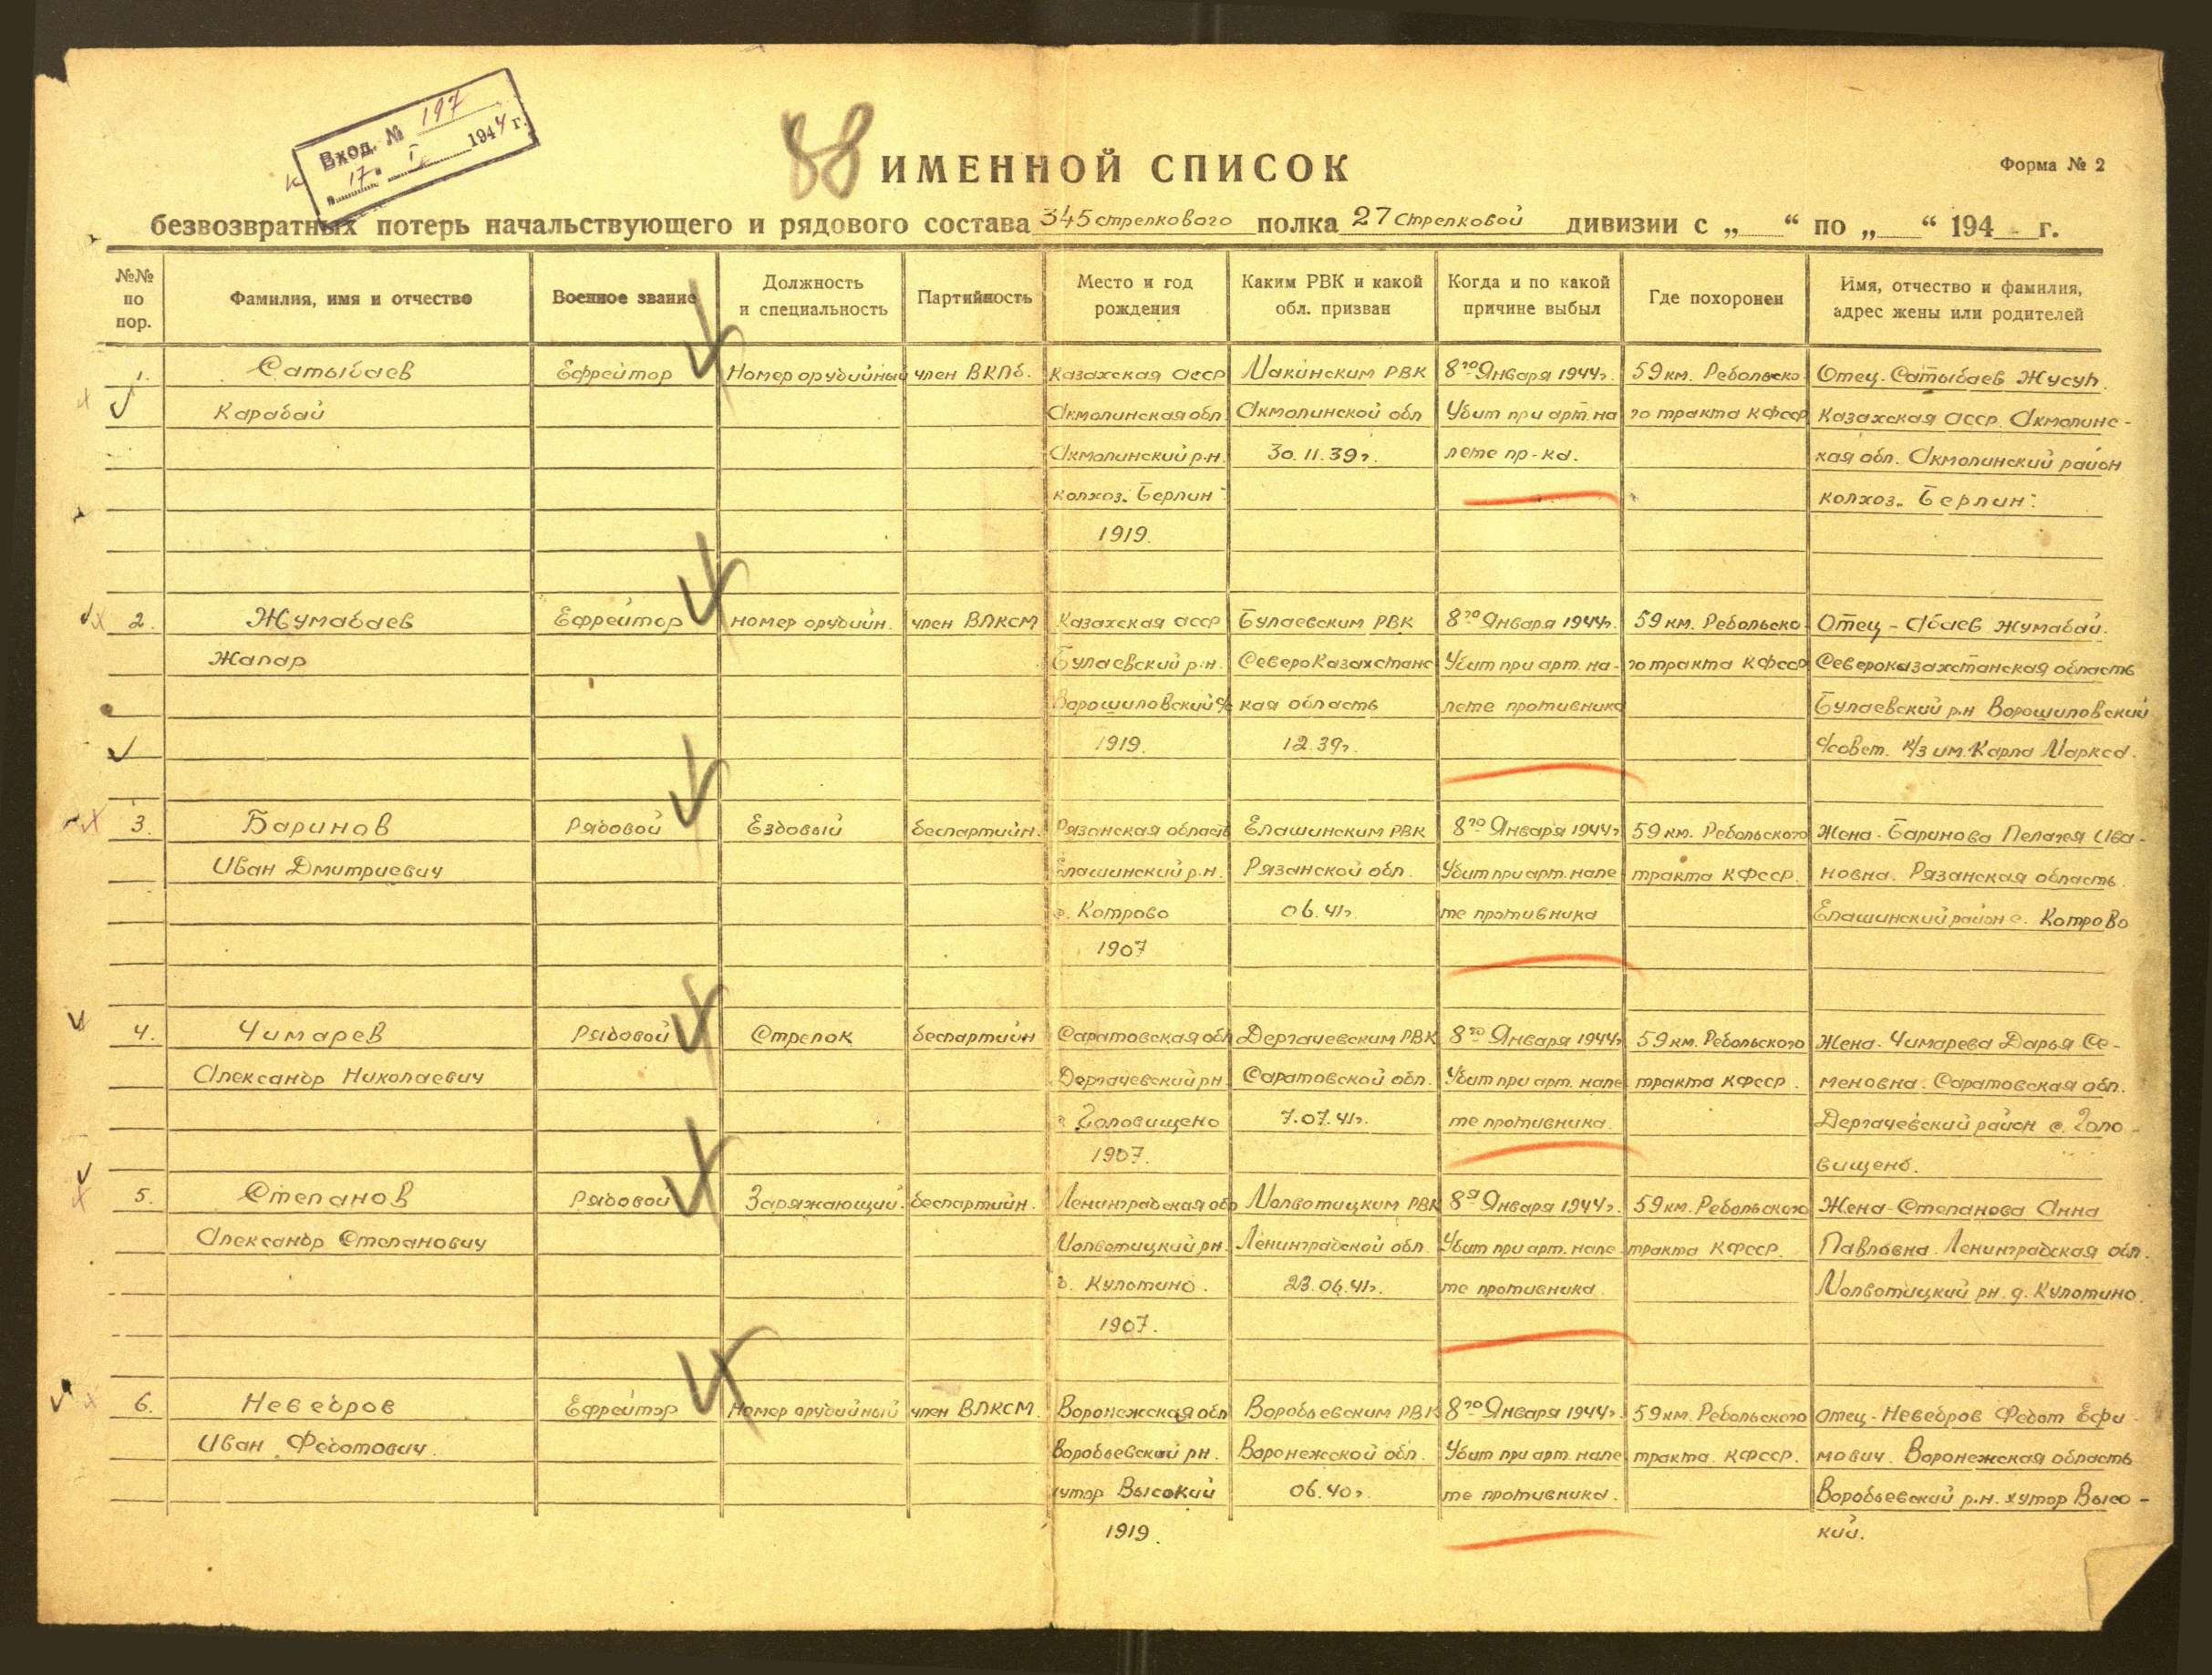 Вход. № 197
"17" I 1944 г.
88
ИМЕННОЙ СПИСОК
Форма № 2
безвозвратных потерь начальствующего и рядового состава 345 стрелкового полка 27 Стрелковой дивизии с „ “ по „ “ 194 г.
№№ по пор.
Фамилия, имя и отчество
Военное звание
Должность и специальность
Партийность
Место и год рождения
Каким РВК и какой обл. призван
Когда и по какой причине выбыл
Где похоронен
Имя, отчество и фамилия, адрес жены или родителей
1. Сатыбаев Ефрейтор Номер орудийный член ВКПб. Казахская асср Макинским РВК 8го Января 1944г. 59 км. Ребольско Отец-Сатыбаев Жусуп.
Карабай Акмолинская обл Акмолинской обл Убит при арт. на го тракта КФсср Казахская асср. Акмолинс-
Акмолинский р.н. 30.11.39г. лете пр-ка. кая обл. Акмолинский район
колхоз „Берлин" колхоз „Берлин".
1919.
2. Жумабаев Ефрейтор номер орудийн. член ВЛКСМ Казахская асср Булаевским РВК 8го Января 1944г. 59 км. Ребольско Отец - Абаев Жумабай.
Жапар Булаевский р.н. СевероКазахстанс Убит при арт. на- го тракта КФсср Североказахстанская область
Ворошиловский с/с кая область лете противника Булаевский р.н Ворошиловский
1919. 12.39г. с/совет. к/з им. Карла Маркса.
3. Баринов Рядовой Ездовый беспартийн. Рязанская область Елашинским РВК 8го Января 1944г 59 км. Ребольского Жена-Баринова Пелагея Ива-
Иван Дмитриевич Елашинский р.н. Рязанской обл. Убит при арт. нале тракта КФсср. новна. Рязанская область.
с. Котрово 06.41г. те противника Елашинский район с. Котрово
1907
4. Чимарев Рядовой Стрелок беспартийн Саратовская обл Дергачевским РВК 8го Января 1944г 59 км. Ребольского Жена-Чимарева Дарья Се-
Александр Николаевич Дергачевский рн Саратовской обл. Убит при арт. нале тракта КФсср. меновна. Саратовская обл.
с Головищено 7.07.41г. те противника. Дергачевский район с. Голо-
1907. вищено.
5. Степанов Рядовой Заряжающий. беспартийн. Ленинградская обл Молвотицким РВК 8го Января 1944г. 59 км. Ребольского Жена-Степанова Анна
Александр Степанович Молвотицкий рн. Ленинградской обл. Убит при арт. нале- тракта КФсср. Павловна. Ленинградская обл.
д. Кулотино. 23.06.41г. те противника Молвотицкий рн. д. Кулотино.
1907.
6. Неведров Ефрейтор Номер орудийный член ВЛКСМ. Воронежская обл Воробьевским РВК 8го Января 1944г. 59 км. Ребольского Отец-Неведров Федот Ефи-
Иван Федотович. Воробьевский рн. Воронежской обл. Убит при арт. нале тракта. КФсср. мович. Воронежская область
хутор Высокий 06.40г. те противника. Воробьевский р.н. хутор Высо-
1919. кий.